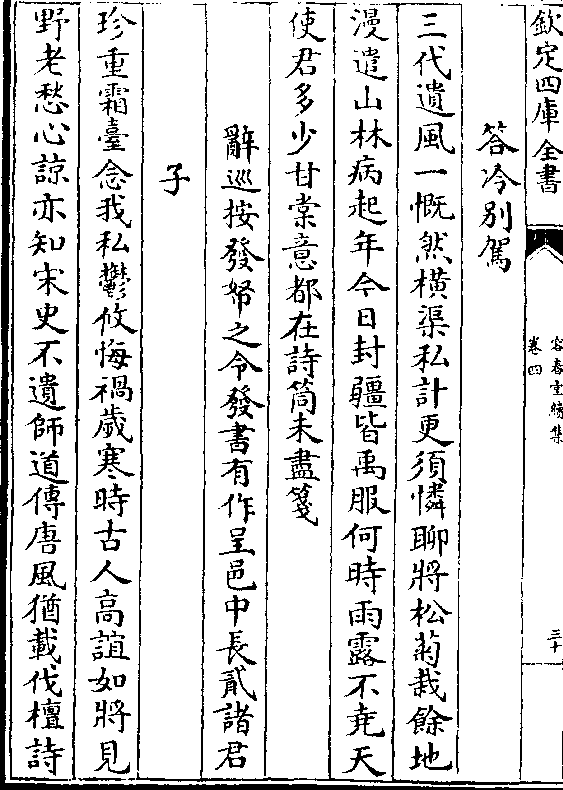 欽定四庫全書
容春堂續集
卷四
三十
答冷别駕
三代遺風一慨然横渠私計更須憐聊將松菊栽餘地
漫遣山林病起年今日封疆皆禹服何時雨露不堯天
使君多少甘棠意都在詩筒未盡箋
辭巡按發帑之令發書有作呈邑中長貳諸君
子
珍重霜臺念我私鬱攸悔禍歲寒時古人高誼如將見
野老愁心諒亦知宋史不遺師道傳唐風猶載伐檀詩